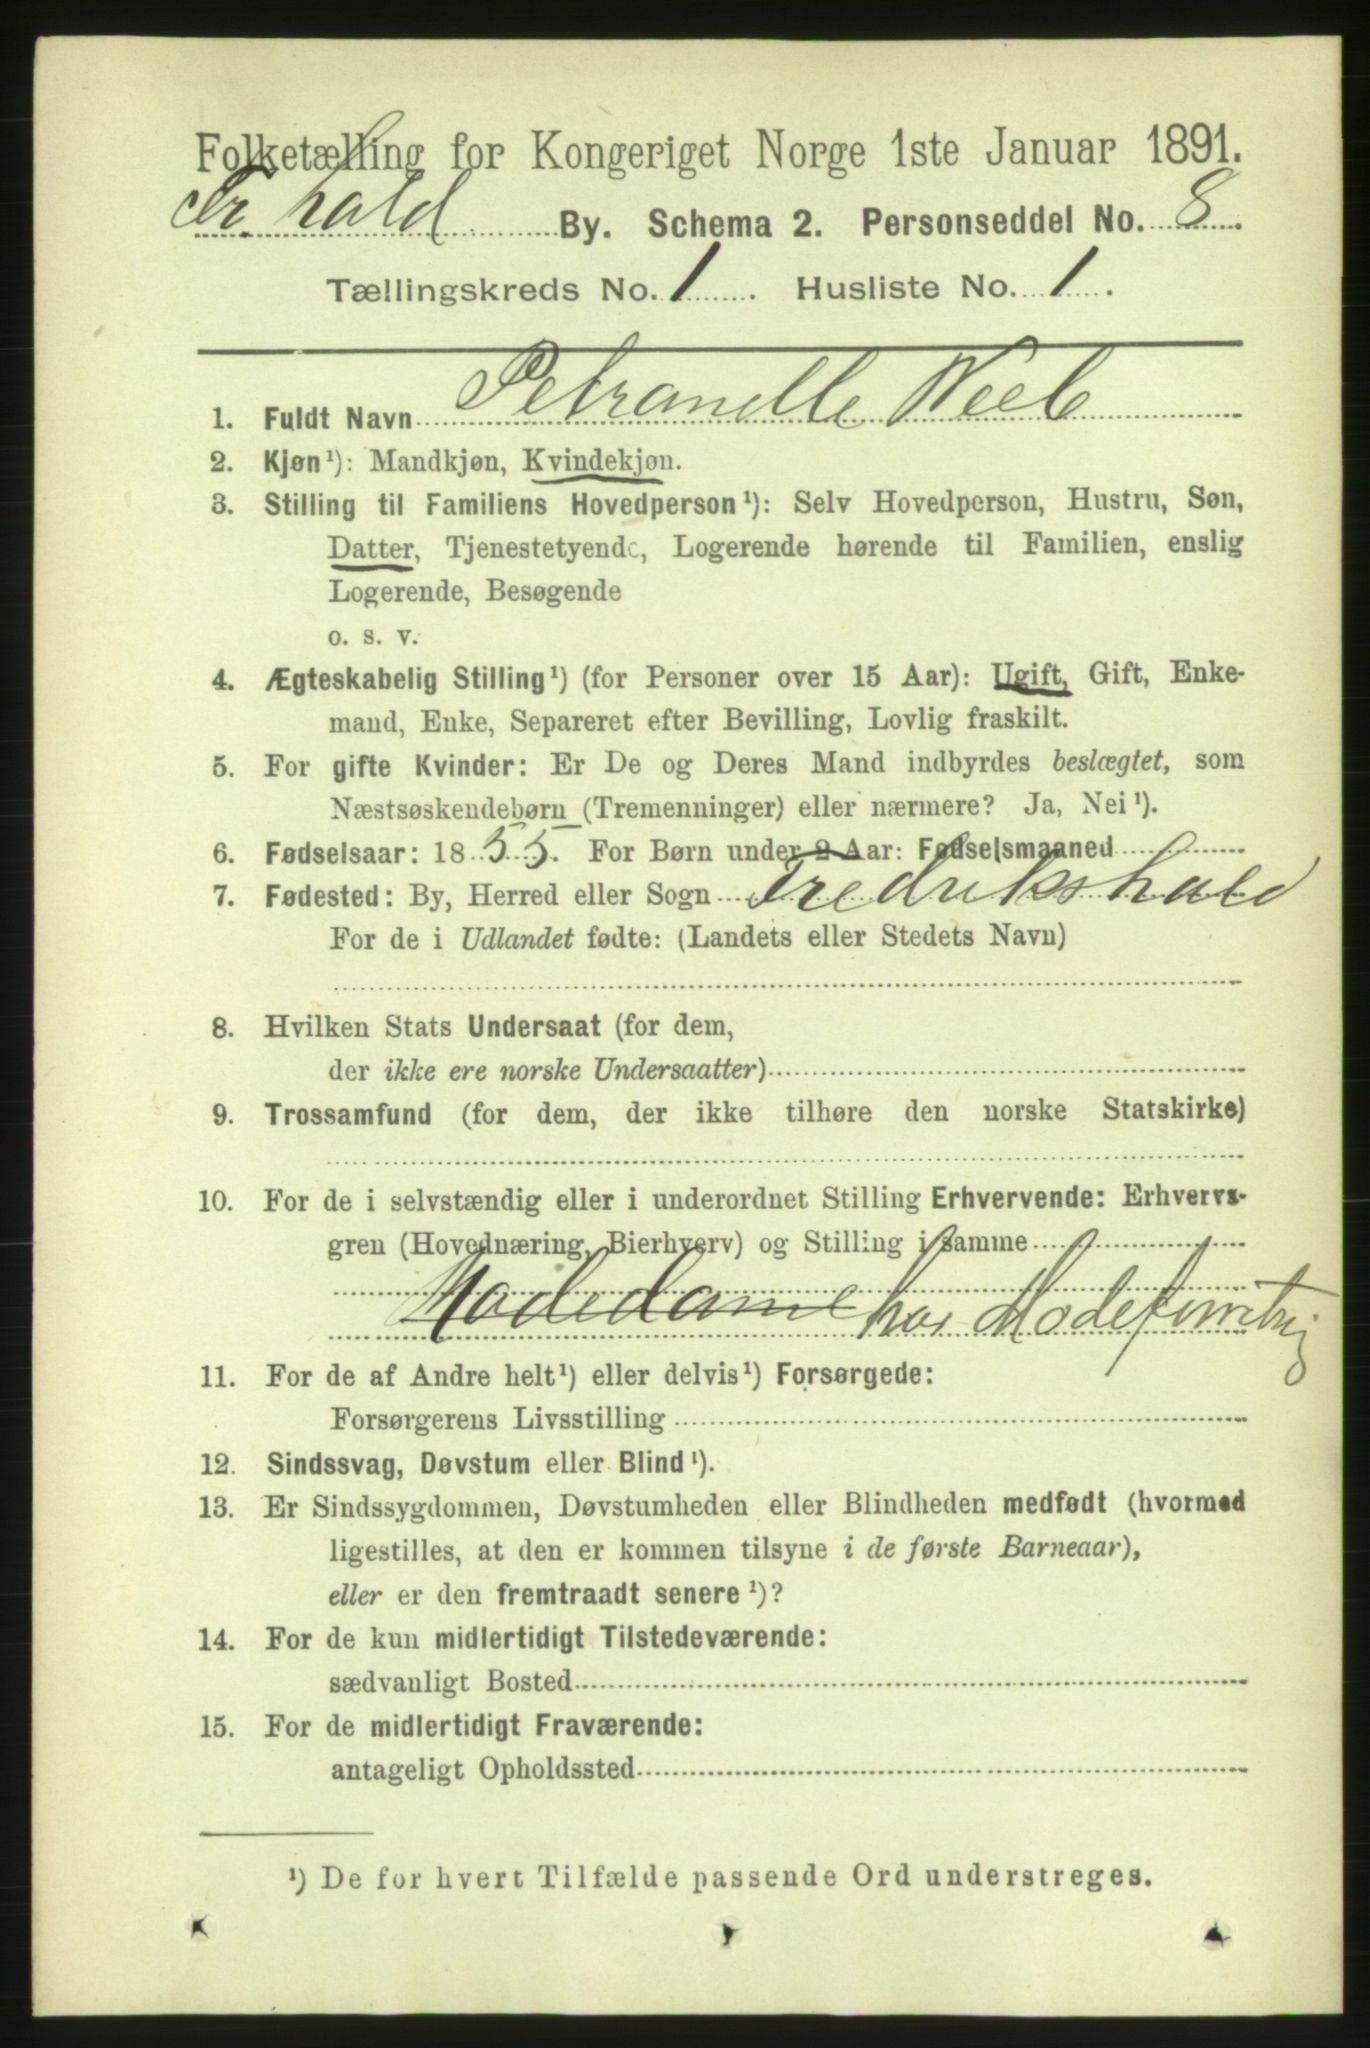 Folketælling for Kongeriget Norge 1ste Januar 1891.
Fr.hald By. Schema 2. Personseddel No. 8.
Tællingskreds No. 1. Husliste No. 1.
1. Fuldt Navn Petranelle Weel
2. Kjøn ¹): Mandkjøn, Kvindekjøn.
3. Stilling til Familiens Hovedperson ¹): Selv Hovedperson, Hustru, Søn,
Datter, Tjenestetyende, Logerende hørende til Familien, enslig
Logerende, Besøgende
o. s. v.
4. Ægteskabelig Stilling ¹) (for Personer over 15 Aar): Ugift, Gift, Enke-
mand, Enke, Separeret efter Bevilling, Lovlig fraskilt.
5. For gifte Kvinder: Er De og Deres Mand indbyrdes beslægtet, som
Næstsøskendebørn (Tremenninger) eller nærmere? Ja, Nei ¹).
6. Fødselsaar: 1855. For Børn under 2 Aar: Fødselsmaaned
7. Fødested: By, Herred eller Sogn Fredrikshald
For de i Udlandet fødte: (Landets eller Stedets Navn)
8. Hvilken Stats Undersaat (for dem,
der ikke ere norske Undersaatter)
9. Trossamfund (for dem, der ikke tilhøre den norske Statskirke)
10. For de i selvstændig eller i underordnet Stilling Erhvervende: Erhvervs-
gren (Hovednæring, Bierhverv) og Stilling i samme
Modedame har Modeforretng
11. For de af Andre helt ¹) eller delvis ¹) Forsørgede:
Forsørgerens Livsstilling
12. Sindssvag, Døvstum eller Blind ¹).
13. Er Sindssygdommen, Døvstumheden eller Blindheden medfødt (hvormed
ligestilles, at den er kommen tilsyne i de første Barneaar),
eller er den fremtraadt senere ¹)?
14. For de kun midlertidigt Tilstedeværende:
sædvanligt Bosted
15. For de midlertidigt Fraværende:
antageligt Opholdssted
¹) De for hvert Tilfælde passende Ord understreges.